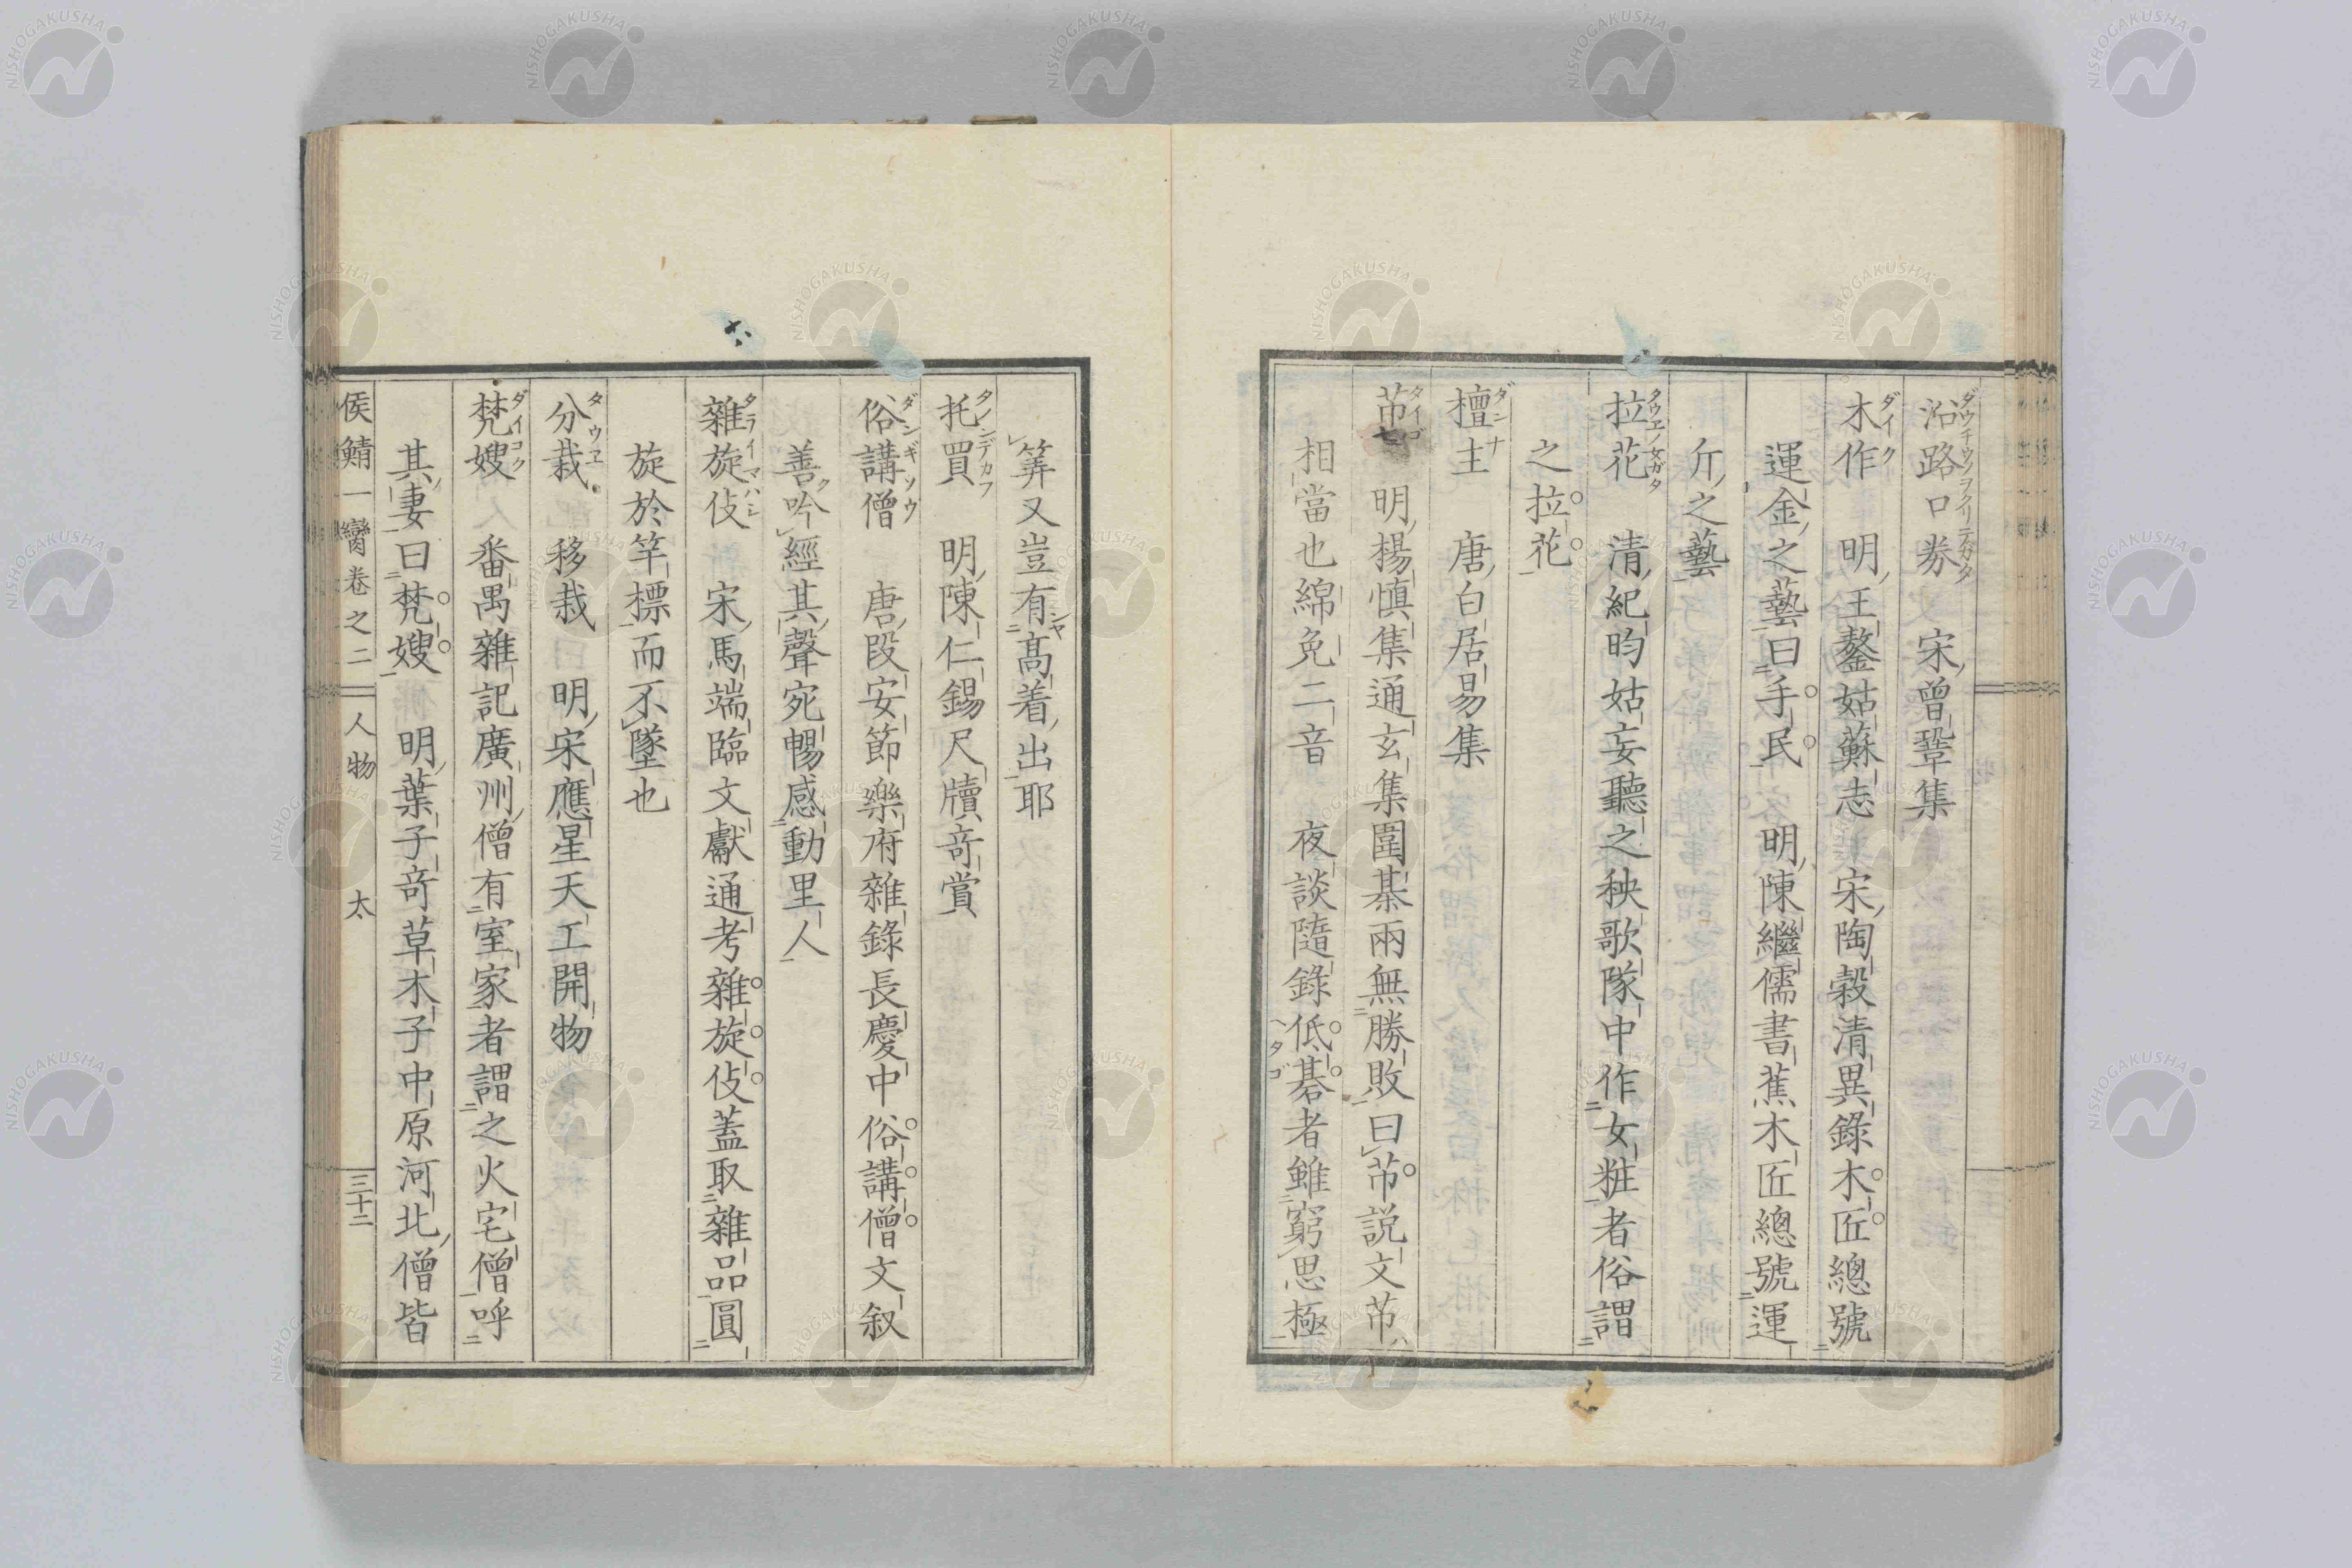 沿路口券　宋曾鞏集
木作　明王鏊姑蘇志　宋陶穀清異錄木匠總號
運金之藝曰手民　明陳繼儒書蕉木匠總號運
斤之藝
拉花　清紀昀姑妄聽之秧歌隊中作女粧者俗謂
之拉花
檀主　唐白居易集
芇　明楊慎集通玄集圍棊兩無勝敗曰芇説文芇
相當也綿免二音　夜談隨錄低碁者雖窮思極
筭又豈有高着出耶
托買　明陳仁錫尺牘竒賞
俗講僧　唐段安節樂府雜錄長慶中俗講僧文叙
善吟經其聲宛暢感動里人
雜旋伎　宋馬端臨文獻通考雜旋伎蓋取雜品圓
旋於竿標而不墜也
分栽　移栽　明宋應星天工開物
梵嫂　番禺雜記廣州僧有室家者謂之火宅僧呼
其妻曰梵嫂　明葉子竒草木子中原河北僧皆
侯鯖一臠卷之二　人物　太　三十二